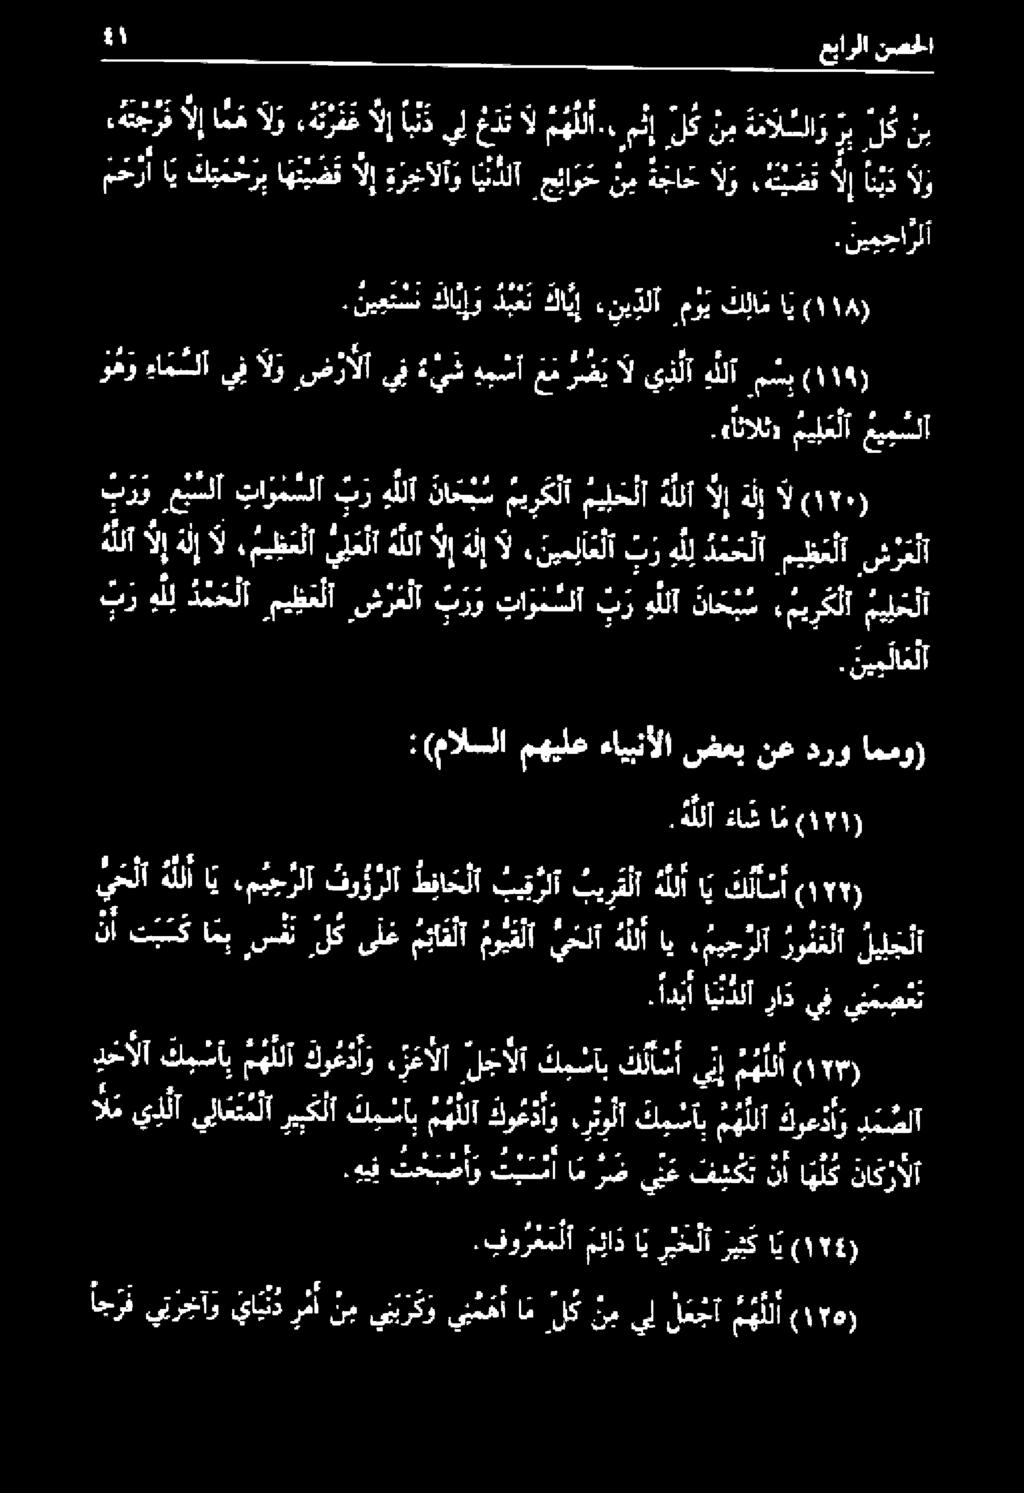 الحصن الرابع ٤١
مِنْ كُلِّ بِرٍّ وَالسَّلاَمَةَ مِنْ كُلِّ إِثْمٍ، . أَللَّهُمَّ لاَ تَدَعْ لِي ذَنْباً إِلاَّ غَفَرْتَهُ، وَلاَ هَمًّا إِلاَّ فَرَّجْتَهُ،
وَلاَ دَيْناً إِلاَّ قَضَيْتَهُ، وَلاَ حَاجَةً مِنْ حَوَائِجِ ٱلدُّنْيَا وَٱلآخِرَةِ إِلاَّ قَضَيْتَهَا بِرَحْمَتِكَ يَا أَرْحَمَ
ٱلرَّاحِمِينَ.
(١١٨) يَا مَالِكَ يَوْمِ ٱلدِّينِ، إِيَّاكَ نَعْبُدُ وَإِيَّاكَ نَسْتَعِينُ.
(١١٩) بِسْمِ ٱللَّهِ ٱلَّذِي لاَ يَضُرُّ مَعَ ٱسْمِهِ شَيْءٌ فِي ٱلأَرْضِ وَلاَ فِي ٱلسَّمَاءِ وَهُوَ
ٱلسَّمِيعُ ٱلْعَلِيمُ «ثلاثاً».
(١٢٠) لاَ إِلٰهَ إِلاَّ ٱللَّهُ ٱلْحَلِيمُ ٱلْكَرِيمُ سُبْحَانَ ٱللَّهِ رَبِّ ٱلسَّمٰوَاتِ ٱلسَّبْعِ وَرَبِّ
ٱلْعَرْشِ ٱلْعَظِيمِ ٱلْحَمْدُ لِلَّهِ رَبِّ ٱلْعَالَمِينَ، لاَ إِلٰهَ إِلاَّ ٱللَّهُ ٱلْعَلِيُّ ٱلْعَظِيمُ، لاَ إِلٰهَ إِلاَّ ٱللَّهُ
ٱلْحَلِيمُ ٱلْكَرِيمُ، سُبْحَانَ ٱللَّهِ رَبِّ ٱلسَّمٰوَاتِ وَرَبِّ ٱلْعَرْشِ ٱلْعَظِيمِ ٱلْحَمْدُ لِلَّهِ رَبِّ
ٱلْعَالَمِينَ.
(ومما ورد عن بعض الأنبياء عليهم السلام):
(١٢١) مَا شَاءَ ٱللَّهُ.
(١٢٢) أَسْأَلُكَ يَا أَللَّهُ ٱلْقَرِيبُ ٱلرَّقِيبُ ٱلْحَافِظُ ٱلرَّؤُوفُ ٱلرَّحِيمُ، يَا أَللَّهُ ٱلْحَيُّ
ٱلْجَلِيلُ ٱلْغَفُورُ ٱلرَّحِيمُ، يا أَللَّهُ ٱلْحَيُّ ٱلْقَيُّومُ ٱلْقَائِمُ عَلَى كُلِّ نَفْسٍ بِمَا كَسَبَتْ أَنْ
تَعْصِمَنِي فِي دَارِ ٱلدُّنْيَا أَبَداً.
(١٢٣) أَللَّهُمَّ إِنِّي أَسْأَلُكَ بِٱسْمِكَ ٱلأَجَلِّ ٱلأَعَزِّ، وَأَدْعُوكَ ٱللَّهُمَّ بِٱسْمِكَ ٱلأَحَدِ
ٱلصَّمَدِ وَأَدْعوكَ ٱللَّهُمَّ بِٱسْمِكَ ٱلْوِتْرِ، وَأَدْعُوكَ ٱللَّهُمَّ بِٱسْمِكَ ٱلْكَبِيرِ ٱلْمُتَعَالِي ٱلَّذِي مَلأَ
ٱلأَرْكَانَ كُلَّهَا أَنْ تَكْشِفَ عَنِّي ضَرَّ مَا أَمْسَيْتُ وَأَصْبَحْتُ فِيهِ.
(١٢٤) يَا كَثِيرَ ٱلْخَيْرِ يَا دَائِمَ ٱلْمَعْرُوفِ.
(١٢٥) أَللَّهُمَّ ٱجْعَلْ لِي مِنْ كُلِّ مَا أَهَمَّنِي وَكَرَبَنِي مِنْ أَمْرِ دُنْيَايَ وَآخِرَتِي فَرَجاً